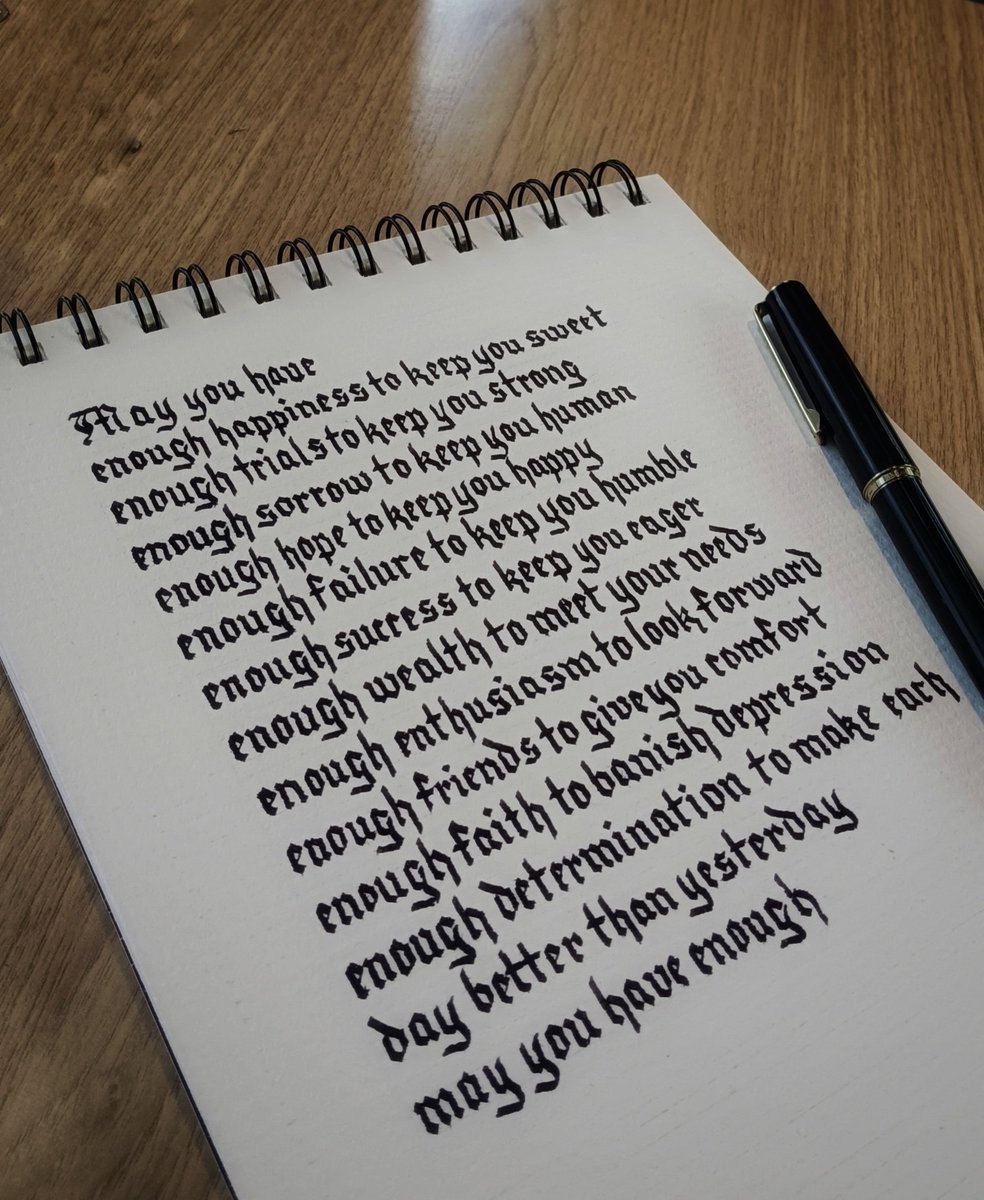 May you have
enough happiness to keep you sweet
enough trials to keep you strong
enough sorrow to keep you human
enough hope to keep you happy
enough failure to keep you humble
enough success to keep you eager
enough wealth to meet your needs
enough enthusiasm to look forward
enough friends to give you comfort
enough faith to banish depression
enough determination to make each
day better than yesterday
may you have enough